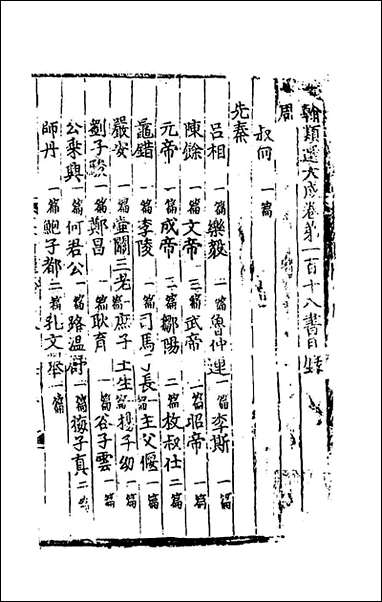 翰類選大成卷第一百十八書目錄
周
叔向 一篇
先秦
呂相 一篇 樂毅 一篇 魯仲連 一篇 李斯 一篇
陳餘 一篇 文帝 三篇 武帝 二篇 昭帝 一篇
元帝 一篇 成帝 二篇 鄒陽 二篇 枚叔仕 二篇
鼂錯 一篇 李陵 一篇 司馬子長 一篇 主父偃 一篇
嚴安 一篇 壺關三老 一篇 庶子王生 一篇 楊子幼 一篇
劉子駿 一篇 鄭昌 一篇 耿育 一篇 谷子雲 一篇
公乘興 一篇 何君公 一篇 路溫舒 一篇 梅子真 二篇
師丹 一篇 鮑子都 二篇 孔文舉 一篇